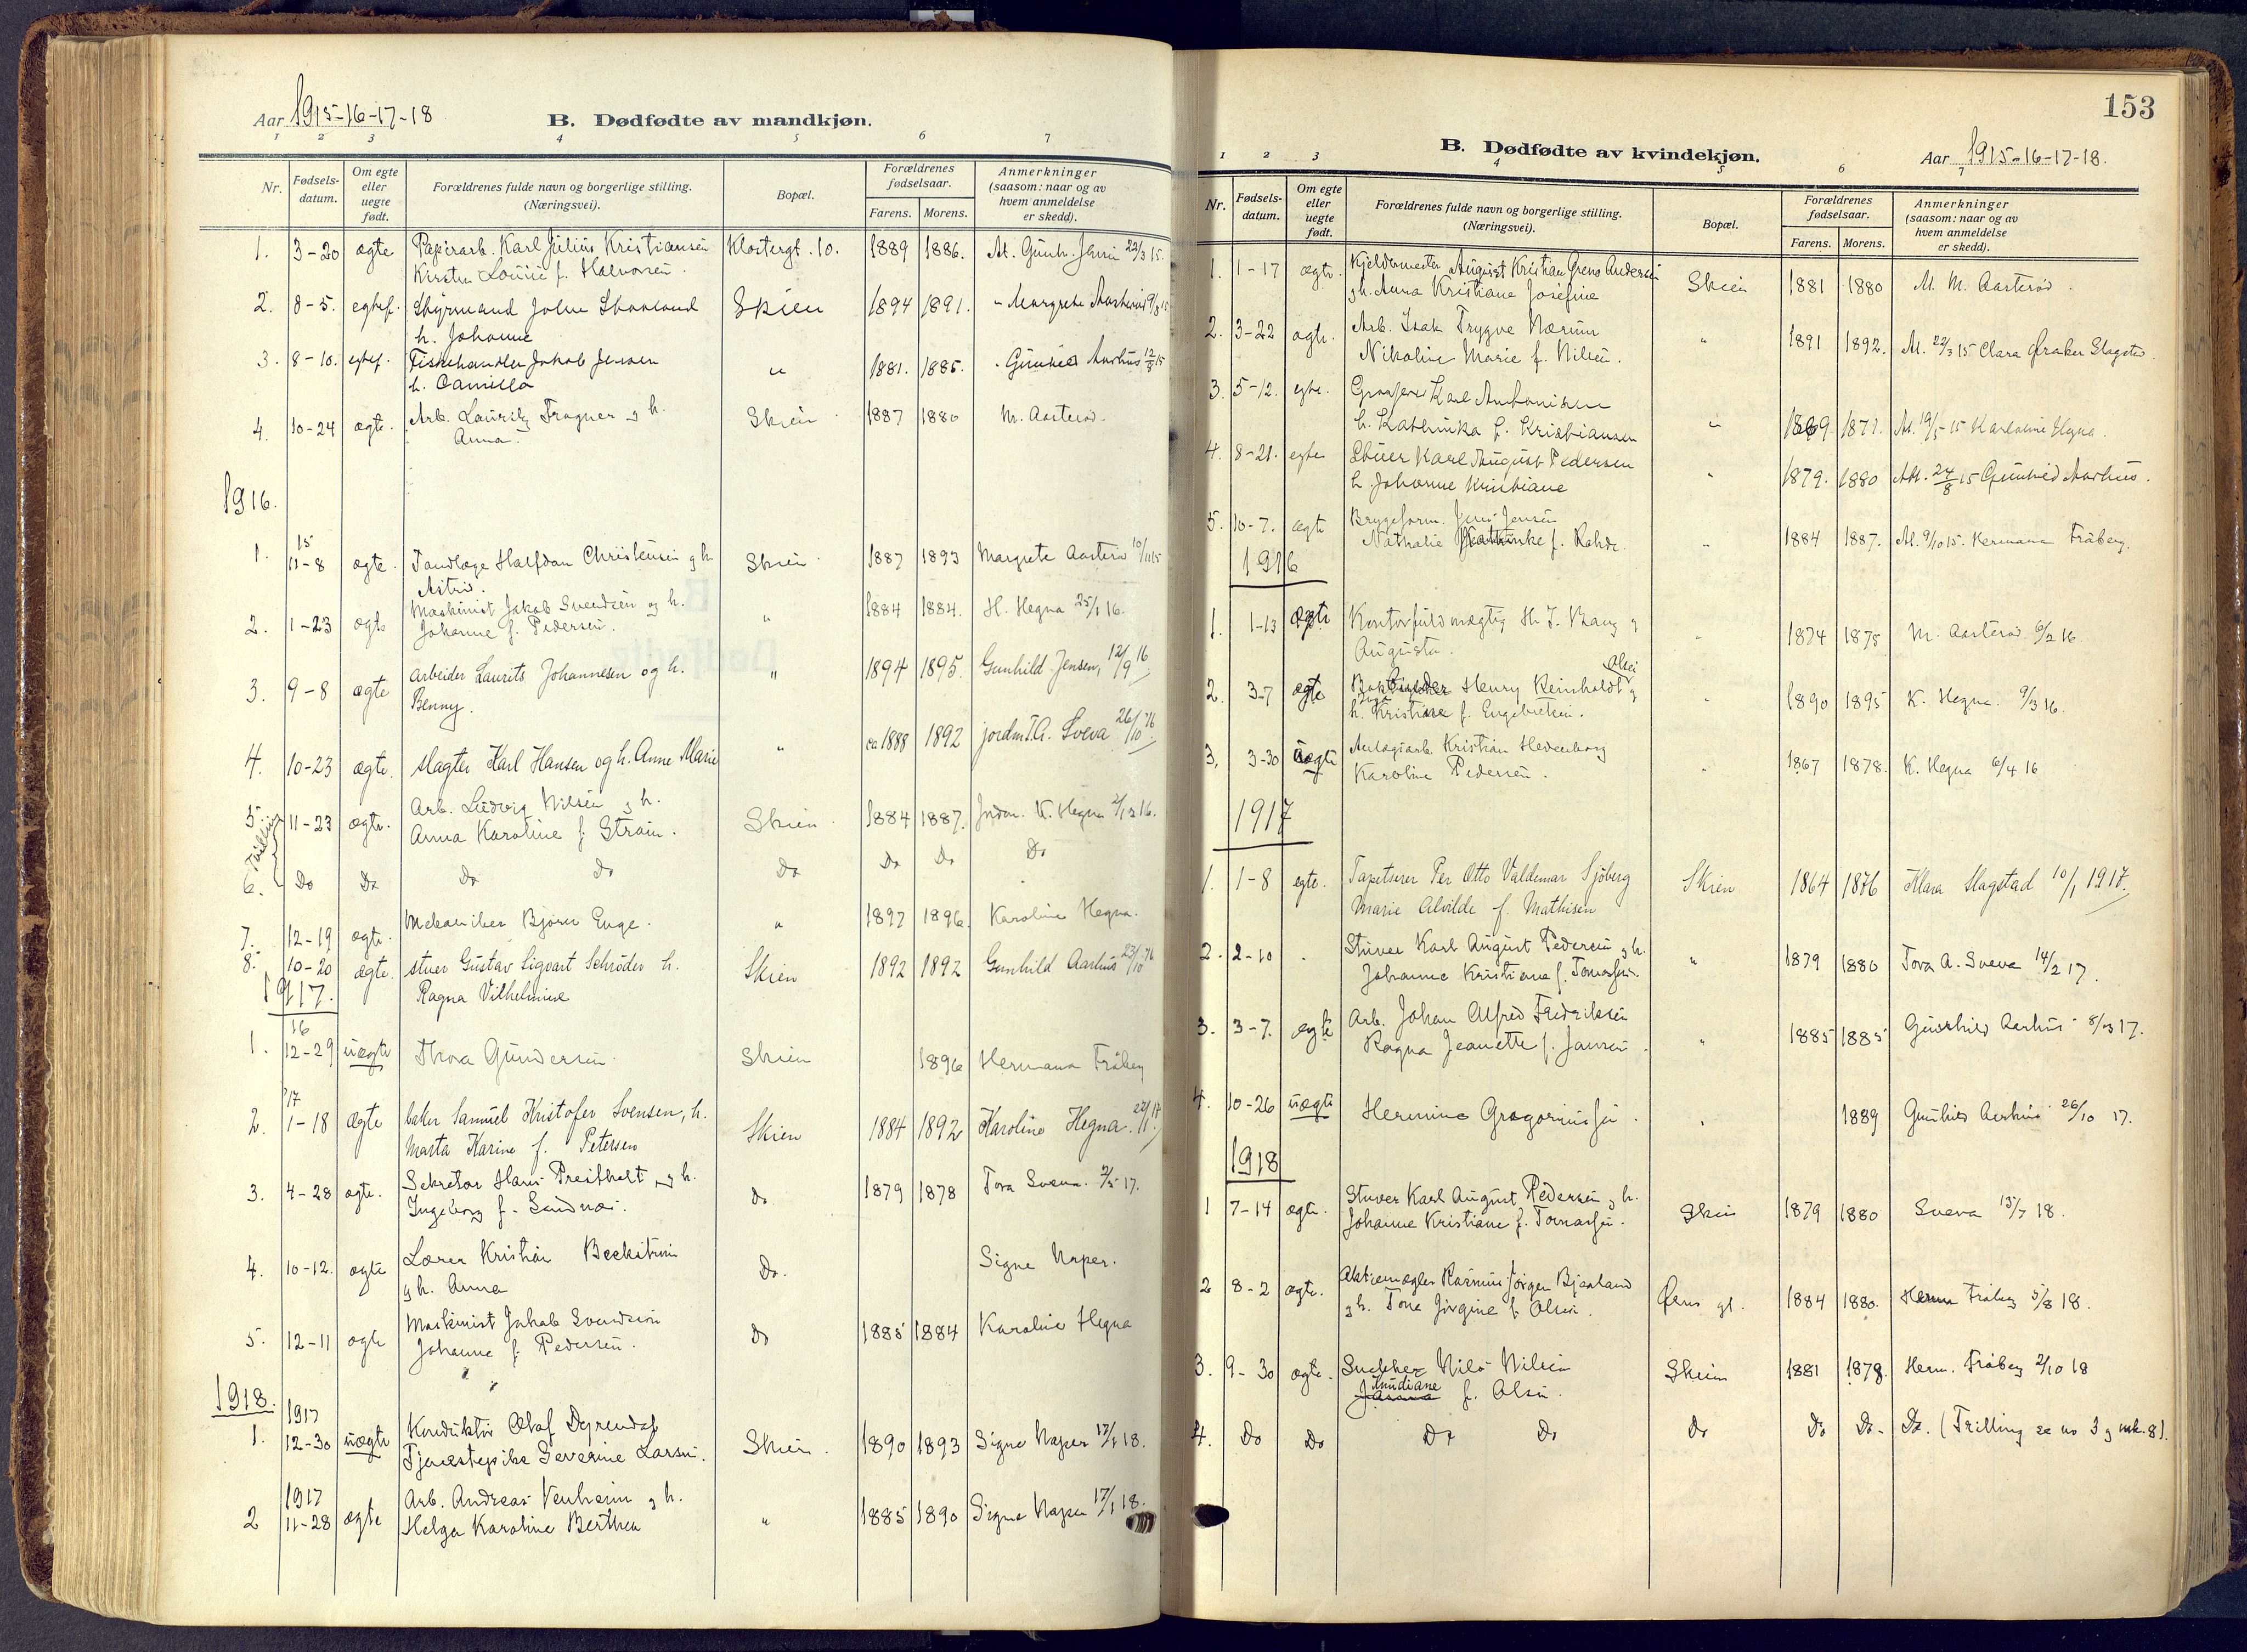 Aar 1915-16-17-18
B. Dødfødte av mandkjøn.
1 2 3 4 5 6 7
Nr. Fødsels-datum. Om egte eller uegte født. Forældrenes fulde navn og borgerlige stilling. (Næringsvei). Bopæl. Forældrenes fødselsaar. Farens. Morens. Anmerkninger (saasom: naar og av hvem anmeldelse er skedd).
1. 3-20 ægte Papirarb. Karl Julius Kristiansen Klostergt. 10. 1889 1886. At. Gunh. Jensen 22/3 15.
Kirsten Louise f. Halvorsen.
2. 8-5. egtef. Styrmand Johan Skien 1894 1891. " Margrete
h. Johanne
3. 8-10. egtef. Fiskehandler Jakob Jensen " 1881. 1885. Aarhus 12/8 15
h. Camilla
4. 10-24 ægte. Arb. Lauritz Fragner og h. Skien 1887 1880 M. Aasterød.
Anna.
1916.
15
1. 11-8 ægte. Tandlæge Halfdan Christensen og h. Skien 1887 1893 Margrete Aasterød 10/11 15
Astrid.
2. 1-23 ægte Maskinist Jakob Svendsen og h. " 1884 1884. H. Hegna 25/1 16.
Johanne f. Pedersen.
3. 9-8 ægte Arbeider Laurits Johannesen og h. " 1894 1895. Gunhild Jensen, 12/9 16
Benny.
4. 10-23 ægte. slagter Karl Hansen og h. Anne Marie " ca 1888 1892 jordm. T. A. Sveva 26/10 16.
5. Tvilling 11-23 ægte. Arb. Ludvig Nilsen og h. Skien 1884 1887. Jordm. K. Hegna 2/12 16.
Anna Karoline f. Strøm.
6. Do Do Do Do Do Do Do Do
7. 12-19 ægte. Mekaniker Bjørn Enge. " 1897 1896. Karoline Hegna.
8. 10-20 ægte. stuer Gustav Sigvart Schrøder h. Skien 1892 1892 Gunhild Aarhus 23/10 16
Ragna Vilhelmine
1917.
16
1. 12-29 uægte Thora Gundersen. Skien 1896 Hermana Fråberg
'17
2. 1-18 Ægte baker Samuel Kristofer Svensen, h. Skien 1884 1892 Karoline Hegna.
Marta Karine f. Petersen
3. 4-28 ægte. Sekretær Hans Prestholt og h. Do 1879 1878 Tora Sveva. 2/5 17.
Ingeborg f. Sandnæs.
4. 10-12. ægte Lærer Kristian Beckstrøm Do. Signe Naper.
og h. Anna
5. 12-11 ægte Maskinist Jakob Svendsen Do 1885 1884 Karoline Hegna
Johanne f. Pedersen.
1918.
1917
1. 12-30 uægte Konduktør Olaf Dyrendal Skien. 1890 1893 Signe Naper 17/1 18.
Tjenestepike Severine Larsen.
1917
2 11-28 ægte Arb. Andreas Venheim og h. " 1885 1890 Signe Naper 17/1 18.
Helga Karoline Berthea
153
B. Dødfødte av kvindekjøn.
Aar 1915-16-17-18.
1 2 3 4 5 6 7
Nr. Fødsels-datum. Om egte eller uegte født. Forældrenes fulde navn og borgerlige stilling. (Næringsvei). Bopæl. Forældrenes fødselsaar. Farens. Morens. Anmerkninger (saasom: naar og av hvem anmeldelse er skedd).
1. 1-17 ægte. Kjeldermester August Kristian Andersen Skien 1881 1880 At. M. Aasterød.
og h. Anna Kristiane Josefine
2. 3-22 ægte. Arb. Isak Trygve Nærum " 1891 1892. At. 22/3 15 Clara Slagstad.
Nikoline Marie f. Nilsen.
3. 5-12. egte. Karl Antonisen
h. Kathinka f. Kristiansen " 1869. At. 19/5 15 Karoline Hegna.
4. 8-21. egte Stuer Karl August Pedersen " 1879. 1880 At. 24/8 15 Gunhild Aarhus.
h. Johanne Kristiane
5. 10-7. ægte Brygeform. Jens Jensen
Nathalie Kathinke f. Rohde. " 1884 1887. At. 9/10 15. Hermana Fråberg.
1916
1. 1-13 Ægte Kontorfuldmægtig H. J. " 1874 1875 M. Aasterød 6/2 16
Augusta.
2. 3-7 ægte Bokbinder Henry Reinholdt Olsen og " 1890 1895 K. Hegna. 9/3 16.
h. Inga Kristine f. Engebretsen.
3. 3-30 uægte Anlægsarb. Kristian Hedenborg " 1867 1878. K. Hegna 6/4 16
Karoline Pedersen.
1917
1. 1-8 egte. Tapetserer Per Otto Valdemar Sjöberg Skien 1864 1876 Klara Slagstad 10/1 1917.
Marie Alvilde f. Mathisen
2. 2-10 . Stuver Karl August Pedersen og h. " 1879 1880 Tora A. Sveva 14/2 17.
Johanne Kristiane f. Tomassen.
3. 3-7. ægte Arb. Johan Alfred Fredriksen " 1885 1885 Gunhild Aarhus 8/3 17.
Ragna Jeanette f. Jansen
4. 10-26 uægte Hermine Gregoriussen. . 1889 Gunhild Aarhus 26/10 17.
1918
1 7-14 ægte. Stuver Karl August Pedersen og h. Skien 1879 1880 Sveva 15/7 18.
Johanne Kristiane f. Tomassen.
2 8-2 ægte. Aktiemægler Rasmus Jörgen Bjaaland gt. 1884 1880. Herm Fråberg 5/8 18.
og h. Tone Jörgine f. Olsen.
3. 9-30 ægte. Snekker Nils Nilsen Skien 1881 1878. Herm. Fråberg 2/10 18
Gundiane f. Olsen.
4. Do Do Do Do Do Do Do. Do. (Trilling se no 3 og mk. 8).